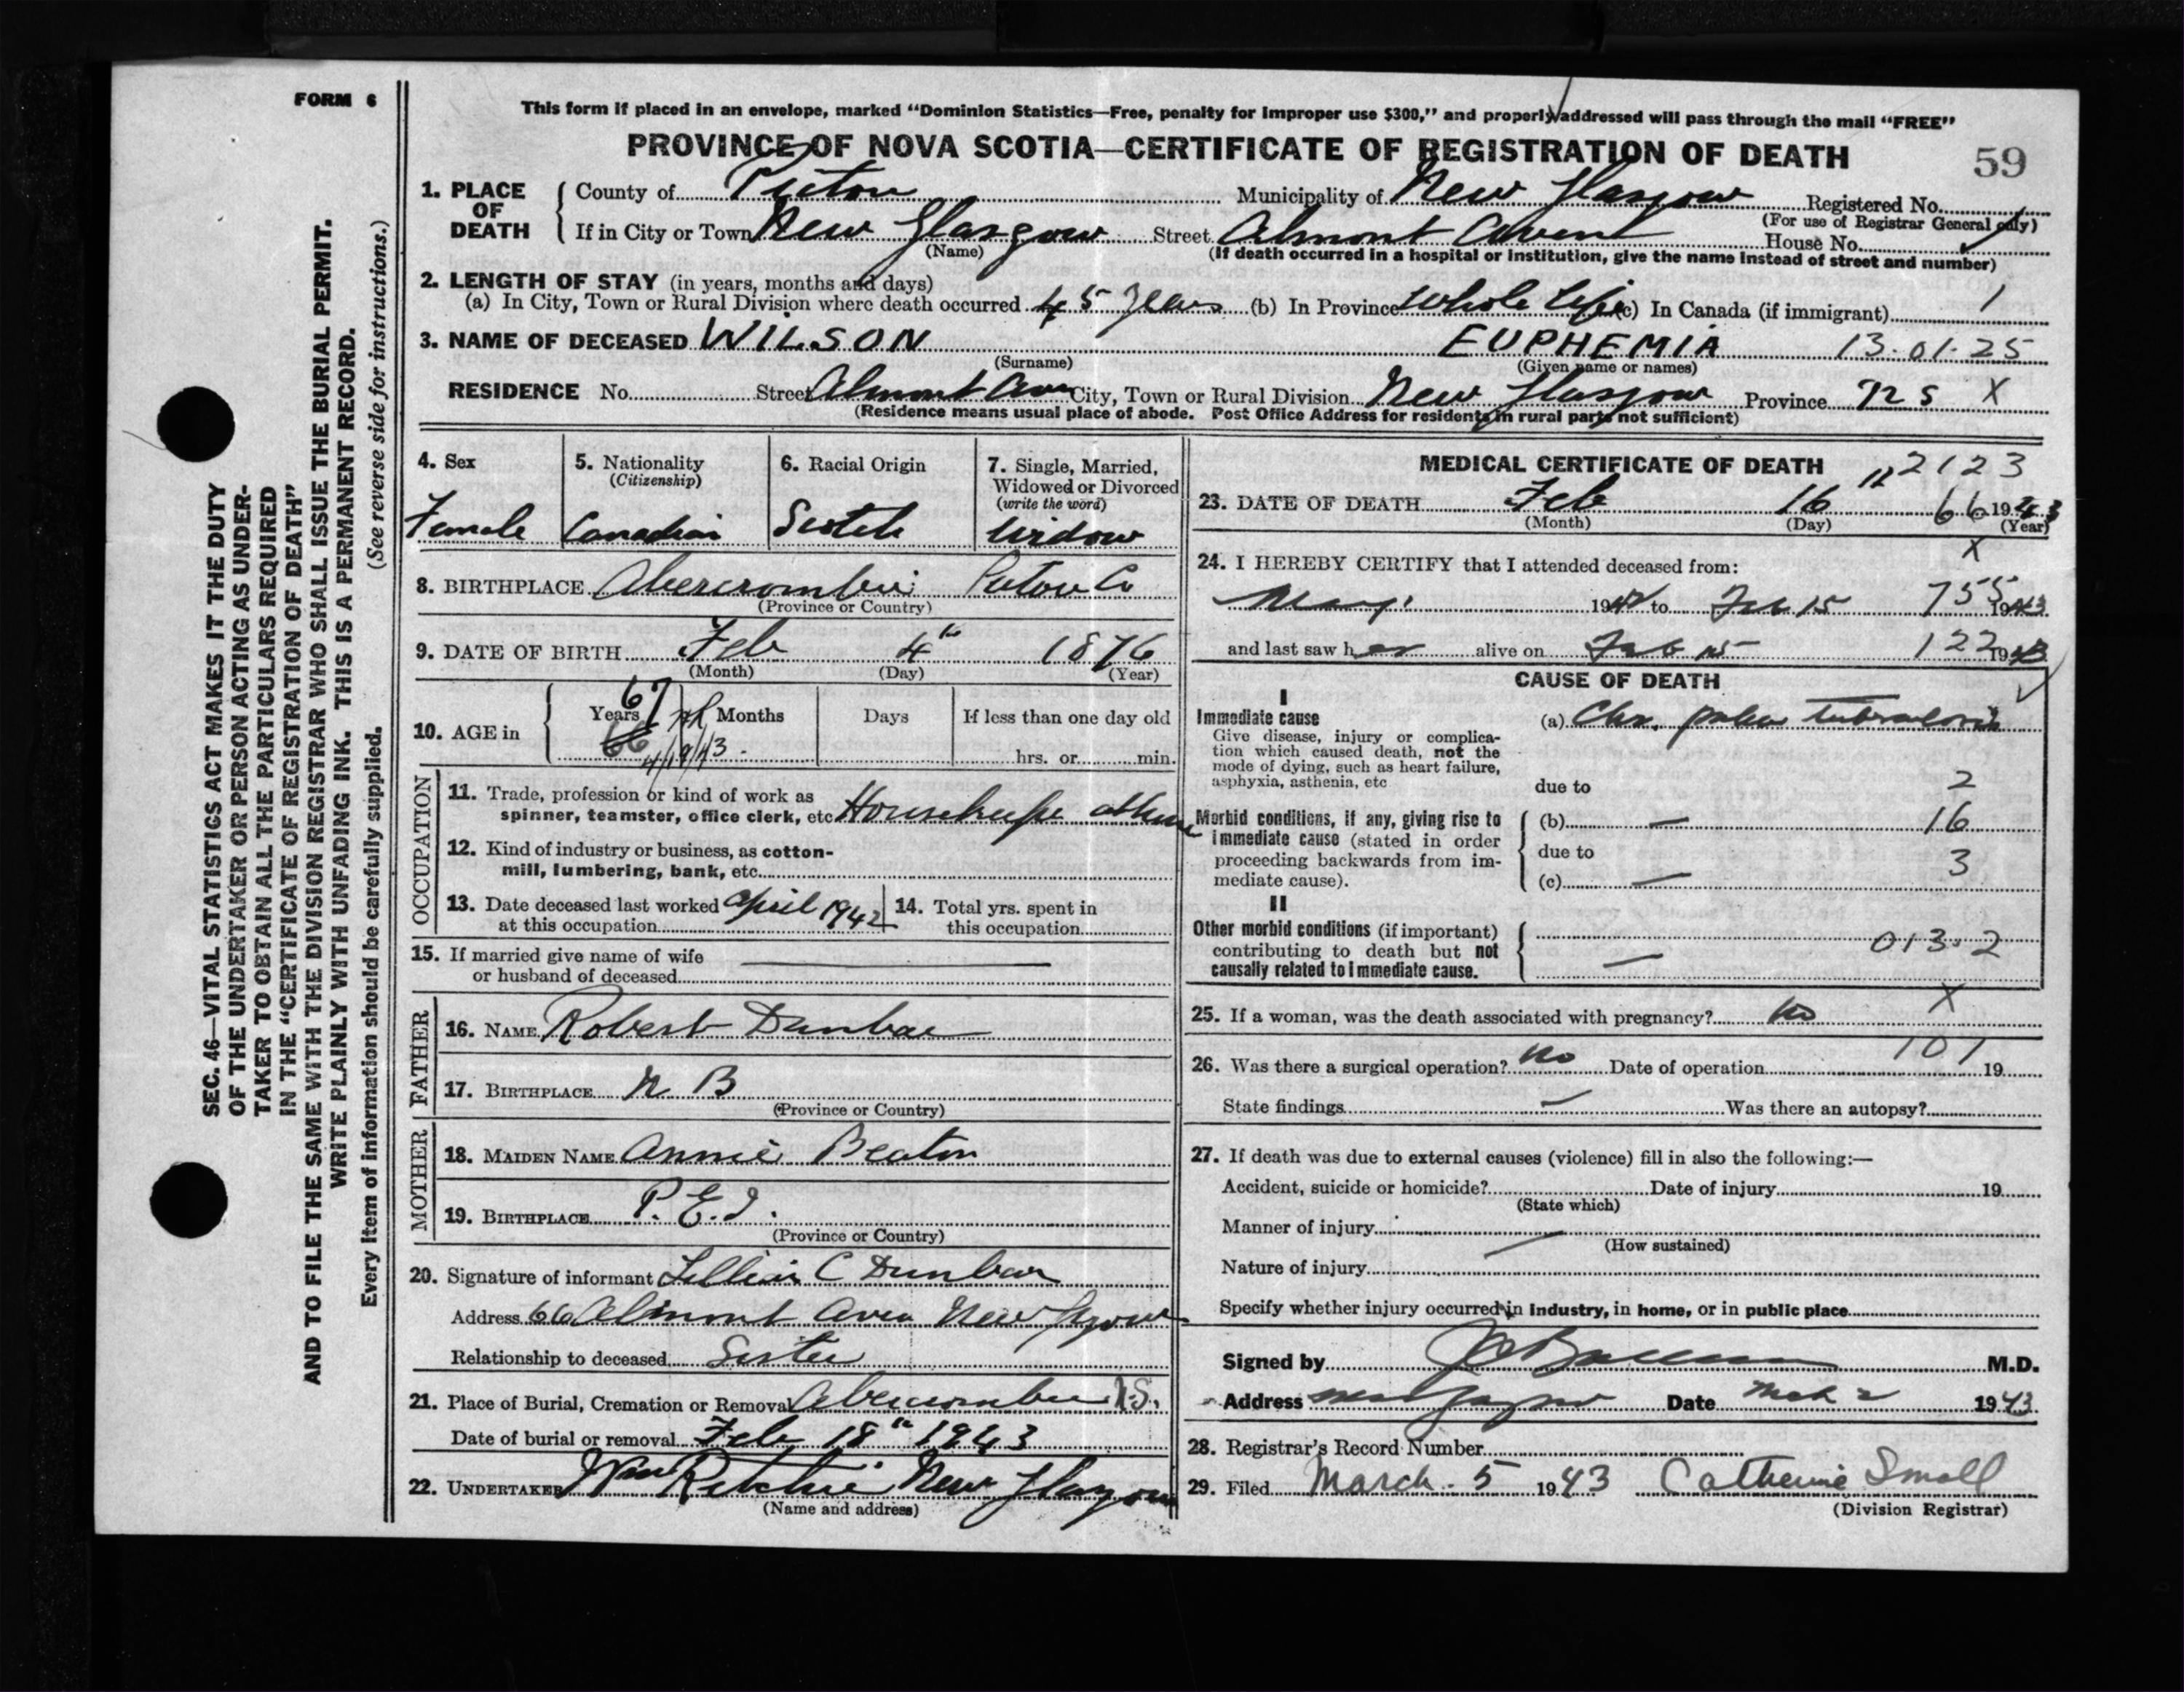 FORM 6
This form if placed in an envelope, marked “Dominion Statistics—Free, penalty for improper use $300,” and properly addressed will pass through the mail “FREE”
PROVINCE OF NOVA SCOTIA—CERTIFICATE OF REGISTRATION OF DEATH 59
1. PLACE OF DEATH
County of Pictou Municipality of New Glasgow Registered No.
(For use of Registrar General only)
If in City or Town New Glasgow Street Almont Avenue House No.
(Name) (If death occurred in a hospital or institution, give the name instead of street and number)
2. LENGTH OF STAY (in years, months and days)
(a) In City, Town or Rural Division where death occurred 45 years (b) In Province Whole Life (c) In Canada (if immigrant) 1
3. NAME OF DECEASED WILSON EUPHEMIA 13-01-25
(Surname) (Given name or names)
RESIDENCE No. Street Almont Ave City, Town or Rural Division New Glasgow Province N S X
(Residence means usual place of abode. Post Office Address for residents in rural parts not sufficient)
4. Sex
Female
5. Nationality
(Citizenship)
Canadian
6. Racial Origin
Scotch
7. Single, Married,
Widowed or Divorced
(write the word)
Widow
8. BIRTHPLACE Abercrombie Pictou Co
(Province or Country)
9. DATE OF BIRTH Feb 4th 1876
(Month) (Day) (Year)
10. AGE in
Years Months Days If less than one day old
67
66
4/19/43.
hrs. or min.
OCCUPATION
11. Trade, profession or kind of work as
spinner, teamster, office clerk, etc. Housekeeper at home
12. Kind of industry or business, as cotton-
mill, lumbering, bank, etc.
13. Date deceased last worked April 1942
at this occupation
14. Total yrs. spent in
this occupation
15. If married give name of wife
or husband of deceased
FATHER
16. NAME Robert Dunbar
17. BIRTHPLACE N B
(Province or Country)
MOTHER
18. MAIDEN NAME Annie Beaton
19. BIRTHPLACE P.E.I.
(Province or Country)
20. Signature of informant Lillian C Dunbar
Address 66 Almont Aven New Glasgow
Relationship to deceased Sister
21. Place of Burial, Cremation or Removal Abercrombie N.S.
Date of burial or removal Feb 18th 1943
22. UNDERTAKER Wm Ritchie New Glasgow
(Name and address)
MEDICAL CERTIFICATE OF DEATH 2123
23. DATE OF DEATH Feb 16th 66 1943
(Month) (Day) (Year)
X
24. I HEREBY CERTIFY that I attended deceased from:
May 1942 to Feb 15 755 1943
and last saw her alive on Feb 15 122 1943
CAUSE OF DEATH
I
Immediate cause
Give disease, injury or complica-
tion which caused death, not the
mode of dying, such as heart failure,
asphyxia, asthenia, etc
(a) Chr. pulm tuberculosis
due to 2
Morbid conditions, if any, giving rise to
immediate cause (stated in order
proceeding backwards from im-
mediate cause).
(b) — 16
due to 3
(c) —
II
Other morbid conditions (if important)
contributing to death but not
causally related to immediate cause.
013.2
—
X
25. If a woman, was the death associated with pregnancy? No
26. Was there a surgical operation? No Date of operation 101 19
State findings — Was there an autopsy?
27. If death was due to external causes (violence) fill in also the following:—
Accident, suicide or homicide? Date of injury 19
(State which)
Manner of injury
(How sustained)
Nature of injury
Specify whether injury occurred in industry, in home, or in public place
Signed by M.D.
Address New Glasgow Date Mch 2 1943
28. Registrar's Record Number
29. Filed March 5 1943 Catherine Small
(Division Registrar)
SEC. 46—VITAL STATISTICS ACT MAKES IT THE DUTY
OF THE UNDERTAKER OR PERSON ACTING AS UNDER-
TAKER TO OBTAIN ALL THE PARTICULARS REQUIRED
IN THE “CERTIFICATE OF REGISTRATION OF DEATH”
AND TO FILE THE SAME WITH THE DIVISION REGISTRAR WHO SHALL ISSUE THE BURIAL PERMIT.
WRITE PLAINLY WITH UNFADING INK. THIS IS A PERMANENT RECORD.
Every item of information should be carefully supplied. (See reverse side for instructions.)